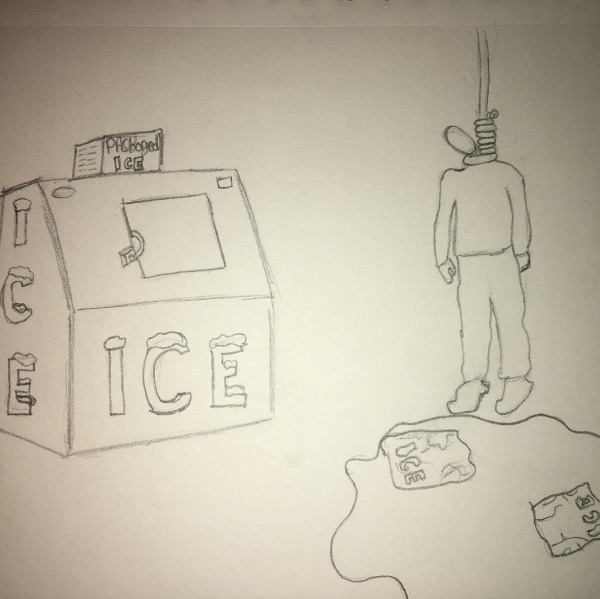 PACkaged
ICE
ICE
ICE
ICE
ICE